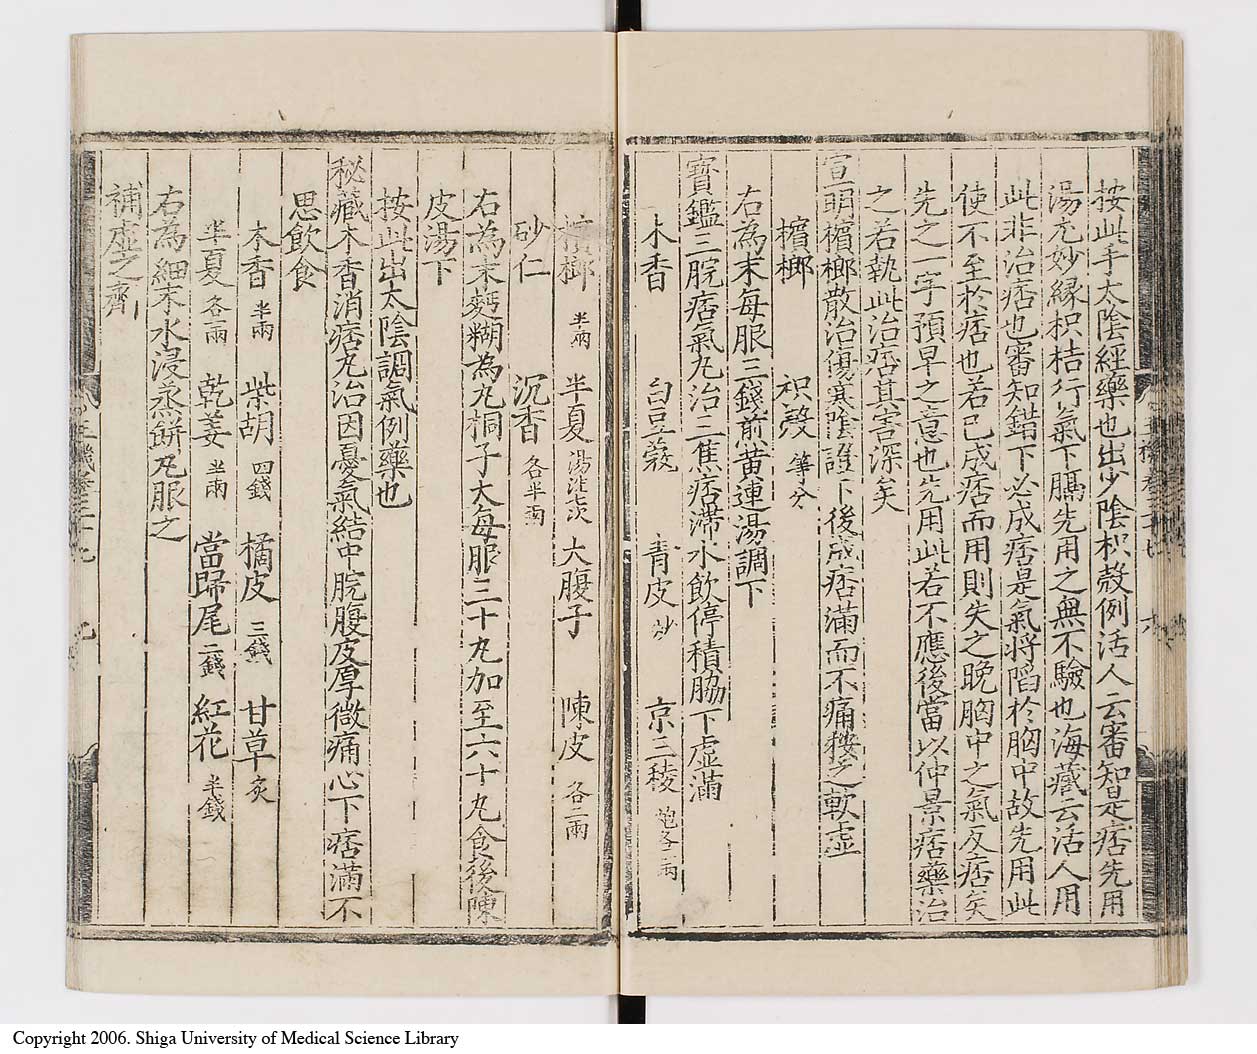 按此手太陰經藥也出少陰枳殼例活人云審知是痞先用
湯尤妙縁枳桔行氣下膈先用之無不驗也海藏云活人用
此非治痞也審知錯下必成痞是氣将陷於胸中故先用此
使不至於痞也若已成痞而用則失之晚胸中之氣反痞矣
先之一字預早之意也先用此若不應後當以仲景痞藥治
之若執此治痞其害深矣
宣明檳榔散治傷寒陰證下後成痞滿而不痛按之軟虚
檳榔 枳殼 等分
右為末每服三錢煎黄連湯調下
寳鑑三脘痞氣丸治三焦痞滞水飲停積脇下虚滿
木香 白豆蔲 青皮 炒 京三稜 炮各一兩
檳榔 半兩 半夏 湯洗次 大腹子 陳皮 各二兩
砂仁 沉香 各半兩
右為末麪糊為丸桐子大每服三十丸加至六十丸食後陳
皮湯下
按此出太陰調氣例藥也
秘藏木香消痞丸治因憂氣結中脘腹皮厚微痛心下痞滿不
思飲食
木香 半兩 柴胡 四錢 橘皮 三錢 甘草 炙
半夏 各一兩 乾姜 半兩 當歸尾 二錢 紅花 半錢
右為細末水浸蒸餅丸服之
補虚之齊
Copyright 2006. Shiga University of Medical Science Library